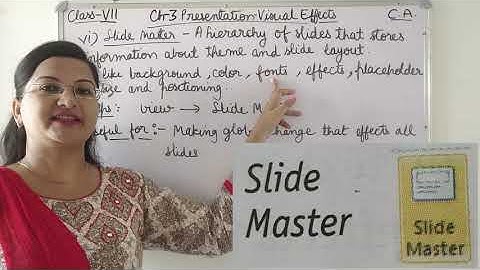 Class-VII Ch:3 Presentation Visual Effects C.A.
vi) Slide Master - A hierarchy of slides that stores
information about theme and slide layout.
like background, color, fonts, effects, placeholder
size and positioning.
view → Slide M
for:- Making global change that effects all
slides
Slide
Master
Slide
Master